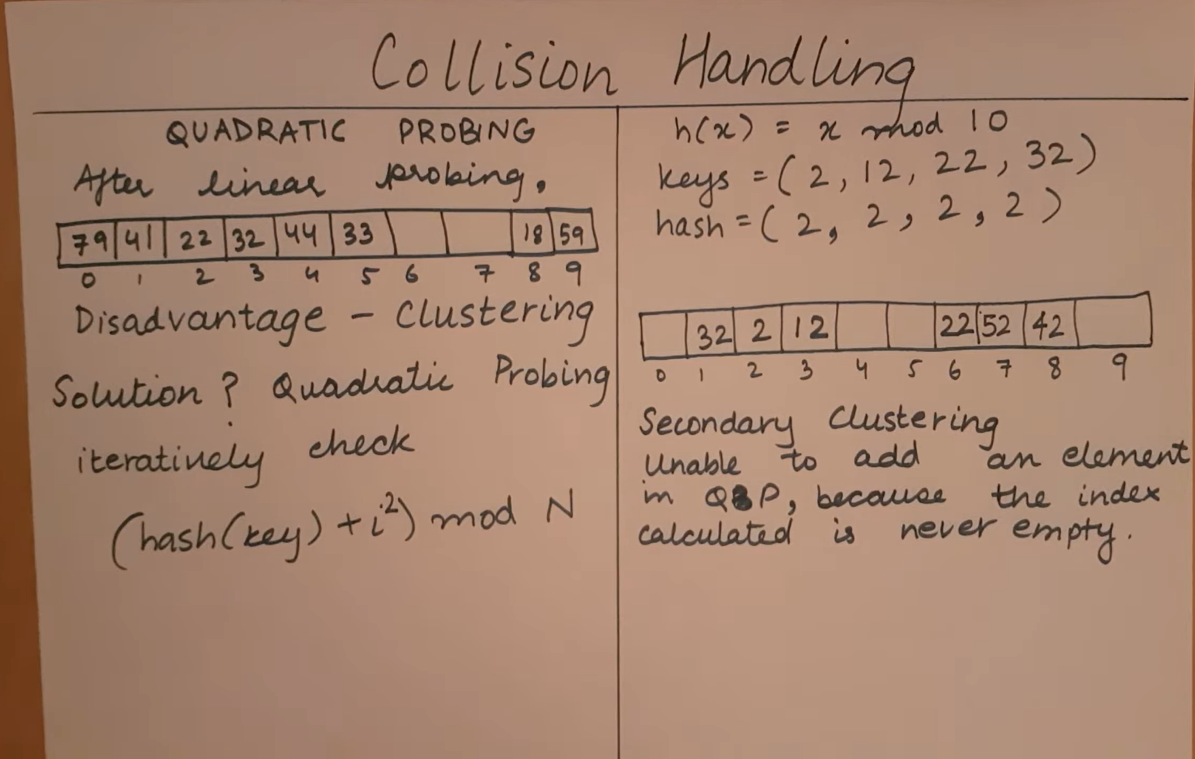 Collision Handling
QUADRATIC PROBING
After linear probing,
79 41 22 32 44 33 18 59
0 1 2 3 4 5 6 7 8 9
Disadvantage - Clustering
Solution? Quadratic Probing
iteratively check
(hash(key) + i²) mod N
h(x) = x mod 10
keys = (2, 12, 22, 32)
hash = (2, 2, 2, 2)
32 2 12 22 52 42
0 1 2 3 4 5 6 7 8 9
Secondary Clustering
Unable to add an element
in QP, because the index
calculated is never empty.